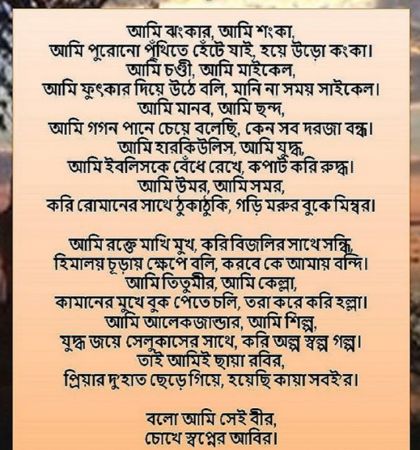 আমি ঝংকার, আমি শংকা,
আমি পুরোনো পুঁথিতে হেঁটে যাই, হয়ে উড়ো কংকা।
আমি চণ্ডী, আমি মাইকেল,
আমি ফুৎকার দিয়ে উঠে বলি, মানি না সময় সাইকেল।
আমি মানব, আমি ছন্দ,
আমি গগন পানে চেয়ে বলেছি, কেন সব দরজা বন্ধ।
আমি হারকিউলিস, আমি যুদ্ধ,
আমি ইবলিসকে বেঁধে রেখে, কপাট করি রুদ্ধ।
আমি উমর, আমি সমর,
করি রোমানের সাথে ঠুকাঠুকি, গড়ি মরুর বুকে মিম্বর।
আমি রক্তে মাখি মুখ, করি বিজলির সাথে সন্ধি,
হিমালয় চূড়ায় ক্ষেপে বলি, করবে কে আমায় বন্দি।
আমি তিতুমীর, আমি কেল্লা,
কামানের মুখে বুক পেতে চলি, তরা করে করি হল্লা।
আমি আলেকজান্ডার, আমি শিল্প,
যুদ্ধ জয়ে সেলুকাসের সাথে, করি অল্প স্বল্প গল্প।
তাই আমিই ছায়া রবির,
প্রিয়ার দু'হাত ছেড়ে গিয়ে, হয়েছি কায়া সবই'র।
বলো আমি সেই বীর,
চোখে স্বপ্নের আবির।